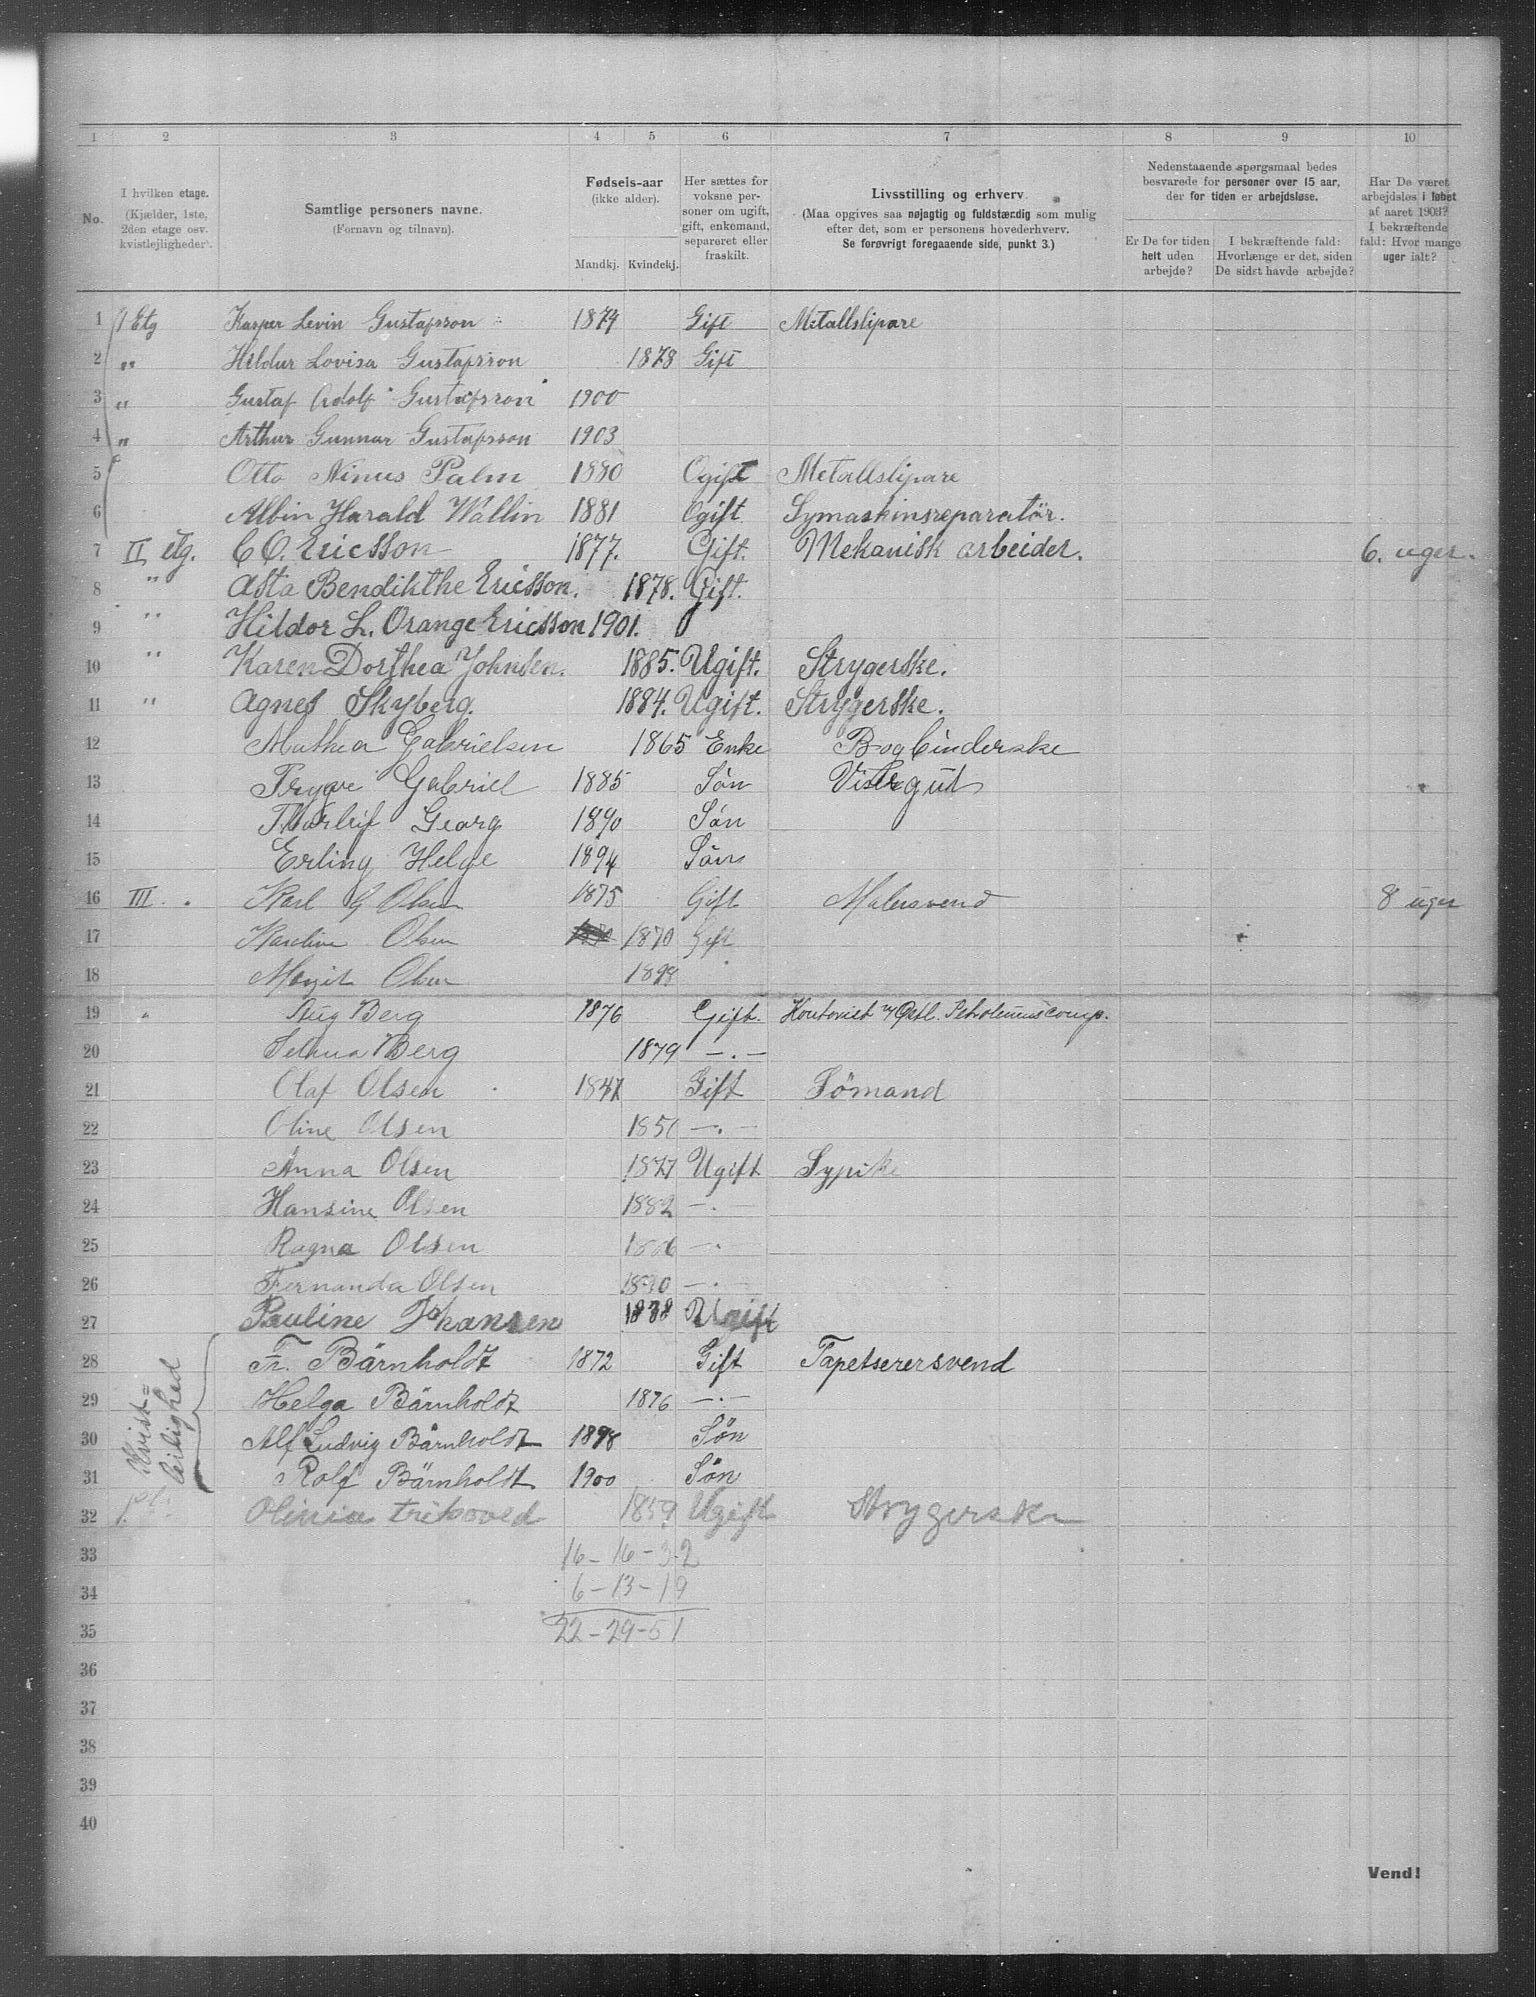 1 2 3 4 5 6 7 8 9 10
No.
I hvilken etage.
(Kjælder, 1ste,
2den etage osv.
kvistlejligheder).
Samtlige personers navne.
(Fornavn og tilnavn).
Fødsels-aar
(ikke alder).
Mandkj. Kvindekj.
Her sættes for
voksne per-
soner om ugift,
gift, enkemand,
separeret eller
fraskilt.
Livsstilling og erhverv
(Maa opgives saa nøjagtig og fuldstændig som mulig
efter det, som er personens hovederhverv.
Se forøvrigt foregaaende side, punkt 3.)
Nedenstaaende spørgsmaal bedes
besvarede for personer over 15 aar,
der for tiden er arbejdsløse.
Er De for tiden
helt uden
arbejde?
I bekræftende fald:
Hvorlænge er det, siden
De sidst havde arbejde?
Har De været
arbejdsløs i løbet
af aaret 1903?
I bekræftende
fald: Hvor mange
uger ialt?
1 1 Etg Kasper Levin Gustafsson 1879 Gift Metallslipare
2 " Hildur Lovisa Gustafsson 1878 Gift
3 " Gustaf Adolf Gustafsson 1900
4 " Arthur Gunnar Gustafsson 1903
5 Otto Ninus Palm 1880 Ogift Metallslipare
6 Albin Harald Wallin 1881 Ogift Symaskinsreparatör.
7 II etg. C O. Ericsson 1877. Gift. Mekanisk arbeider. 6. uger.
8 " Asta Bendikthe Ericsson. 1878. Gift.
9 " Hildor L. Orange Ericsson 1901.
10 " Karen Dorthea Johnsen. 1885. Ugift. Strygerske.
11 " Agnes Skyberg. 1884. Ugift. Strygerske.
12 Mathea Gabrielsen 1865 Enke Bogbinderske
13 Trygve Gabriel 1885 Søn Visergut
14 Thorleif Georg 1890 Søn
15 Erling Helge 1894 Søn
16 III " Karl G Olsen 1875 Gift Malersvend 8 uger
17 Karoline Olsen 1870 Gift
18 Margit Olsen 1898
19 " Aug Berg 1876 Gift. Kontorist v/ Østl. Petroleumscomp.
20 Selma Berg 1879 — . —
21 Olaf Olsen 1847 Gift Sömand
22 Oline Olsen 1850 — . —
23 Anna Olsen 1877 Ugift Sypike
24 Hansine Olsen 1882 — . —
25 Ragna Olsen 1886 — .
26 Fernanda Olsen 1890 — . —
27 Pauline Johansen 1888 Ugift
Kvist=
leilighed
28 Fr. Bärnholdt 1872 Gift Tapetserersvend
29 Helga Bärnholdt 1876 — . —
30 Alf Ludvig Bärnholdt 1898 Sön
31 Rolf Bärnholdt 1900 Sön
32 Olinia 1859 Ugift Strygerske
33 16 - 16 - 32
34 6 - 13 - 19
35 22 - 29 - 51
36
37
38
39
40
Vend!